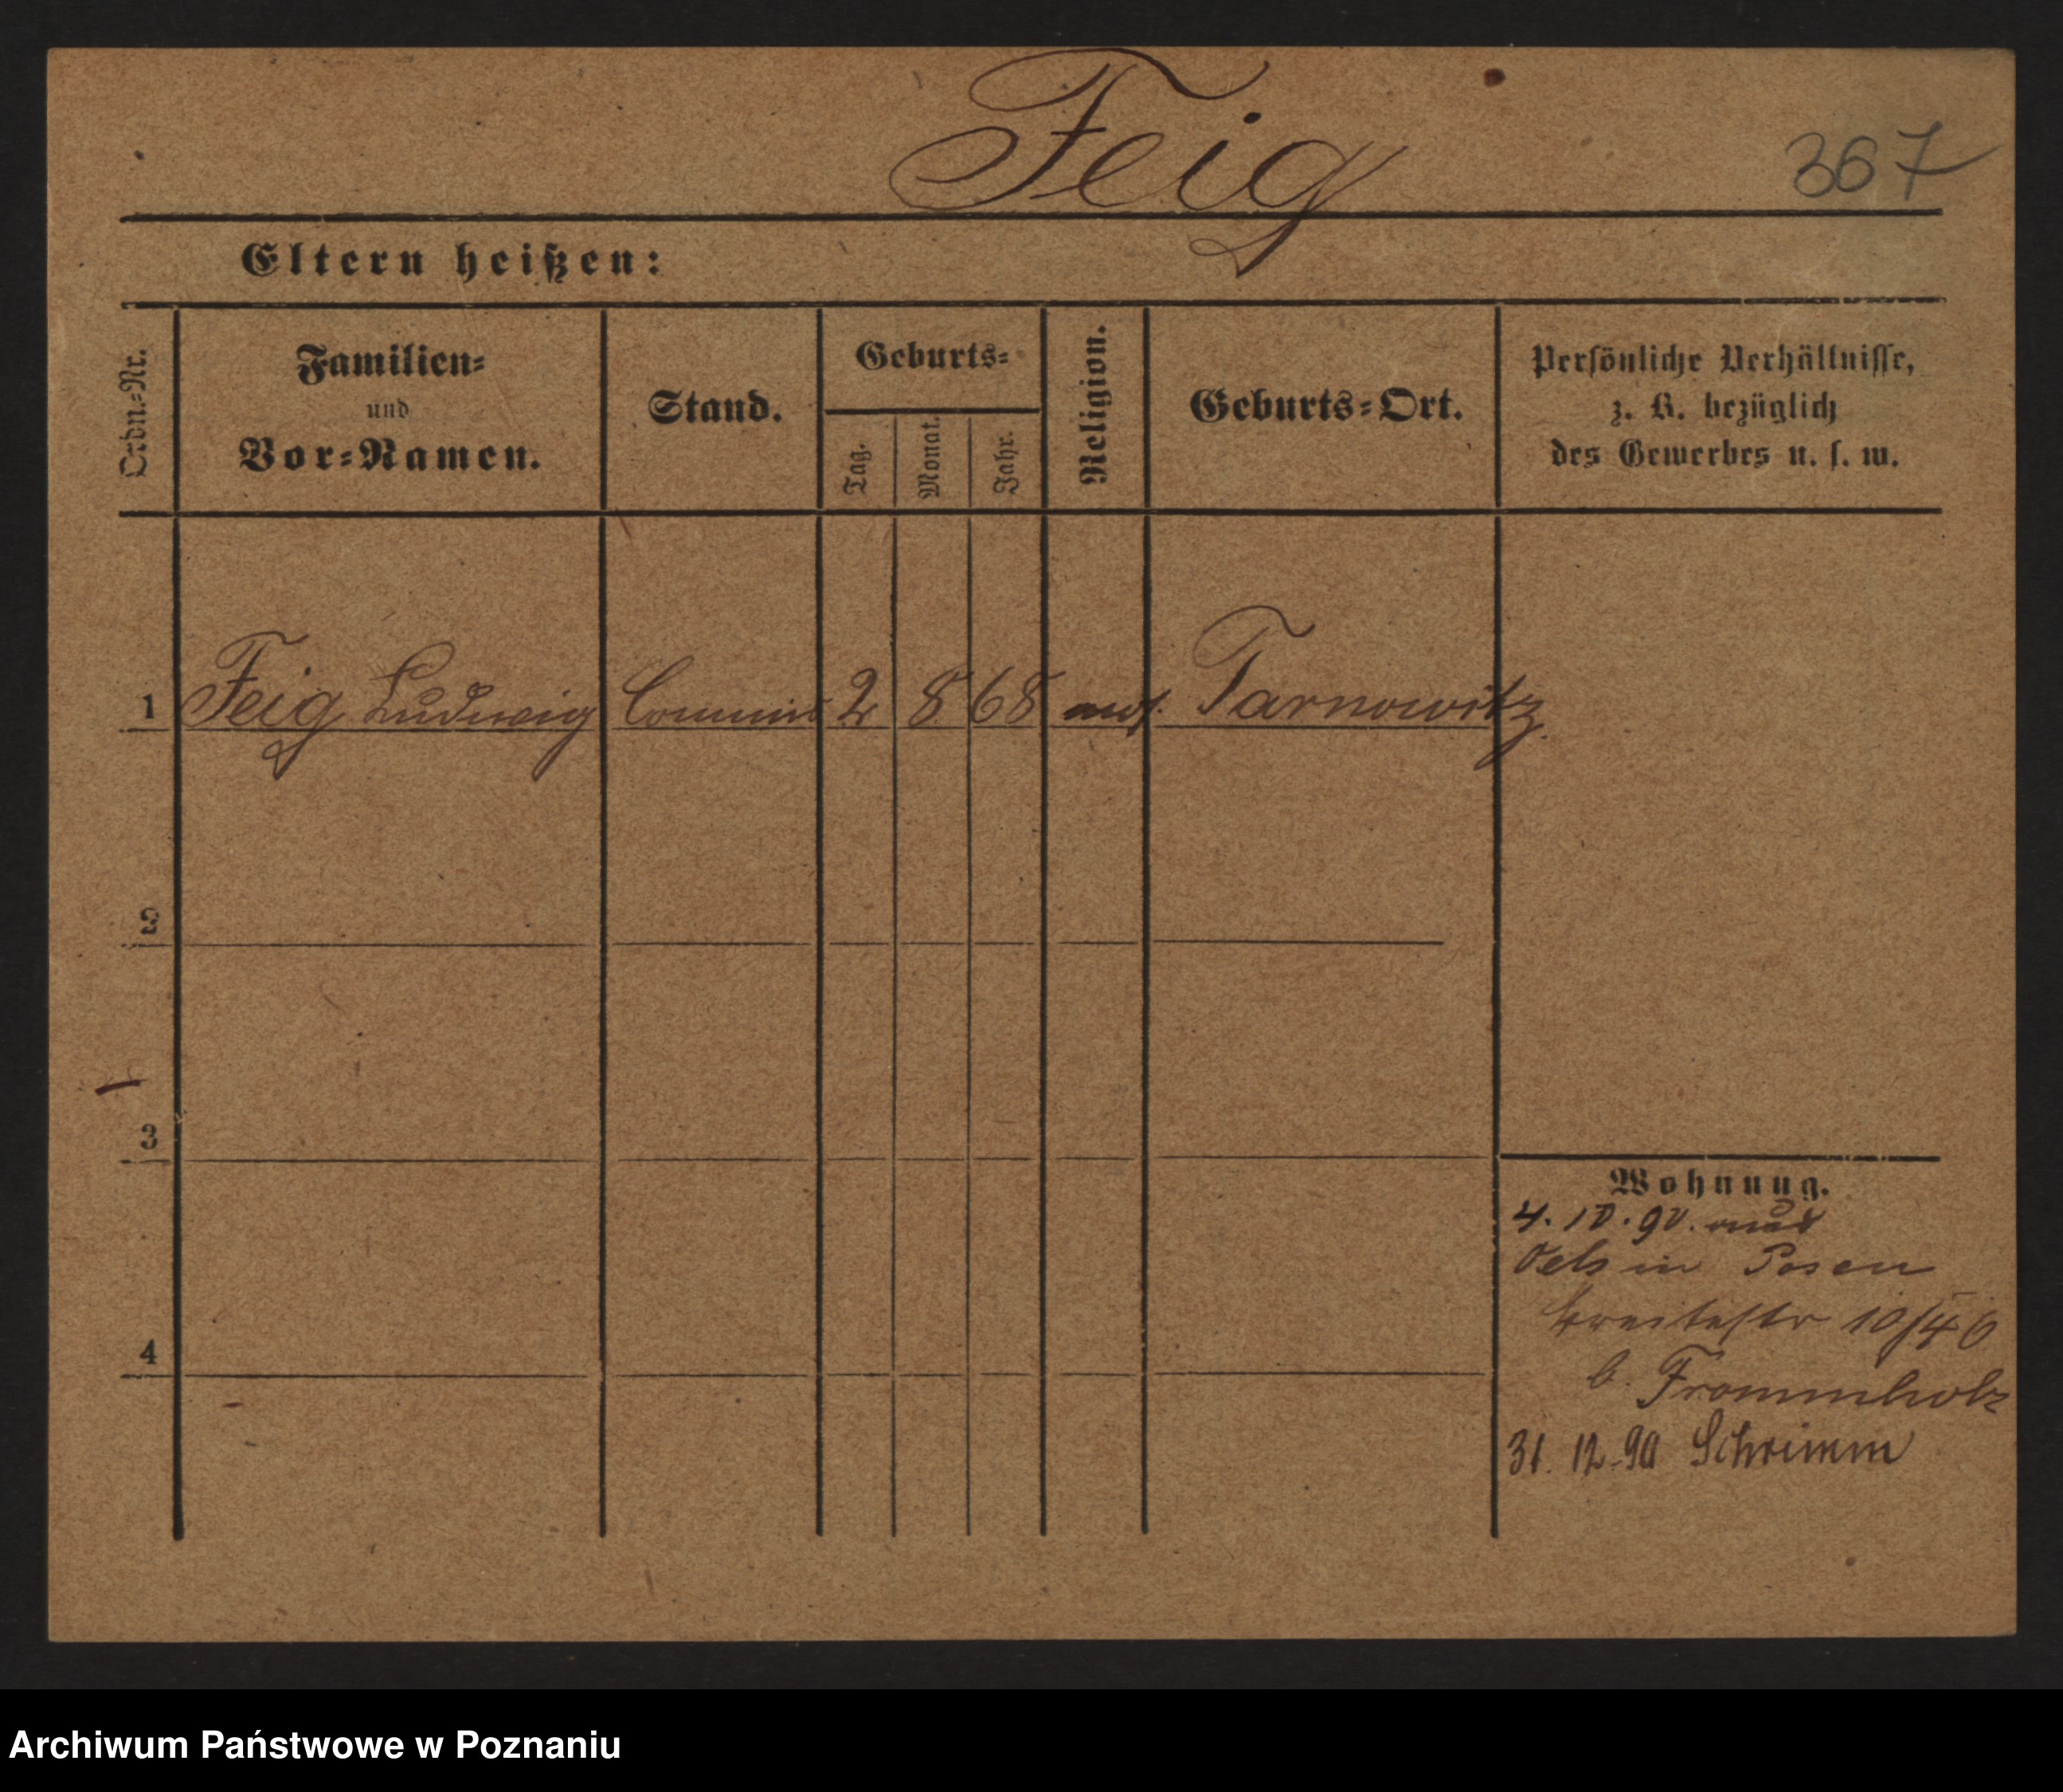 Feig
367
Eltern heißen:
Ordn.-Nr.
Familien-
und
Vor-Namen.
Stand.
Geburts-
Tag.
Monat.
Jahr.
Religion.
Geburts-Ort.
Persönliche Verhältnisse,
z. B. bezüglich
des Gewerbes u. s. w.
1 Feig Ludwig Commis 2 8 68 mos. Tarnowitz
2
3
4
Wohnung.
4. 10. 90. aus
Oels in Posen
Breitestr 10/46
b. Frommholz
31. 12. 90 Schrimm
Archiwum Państwowe w Poznaniu